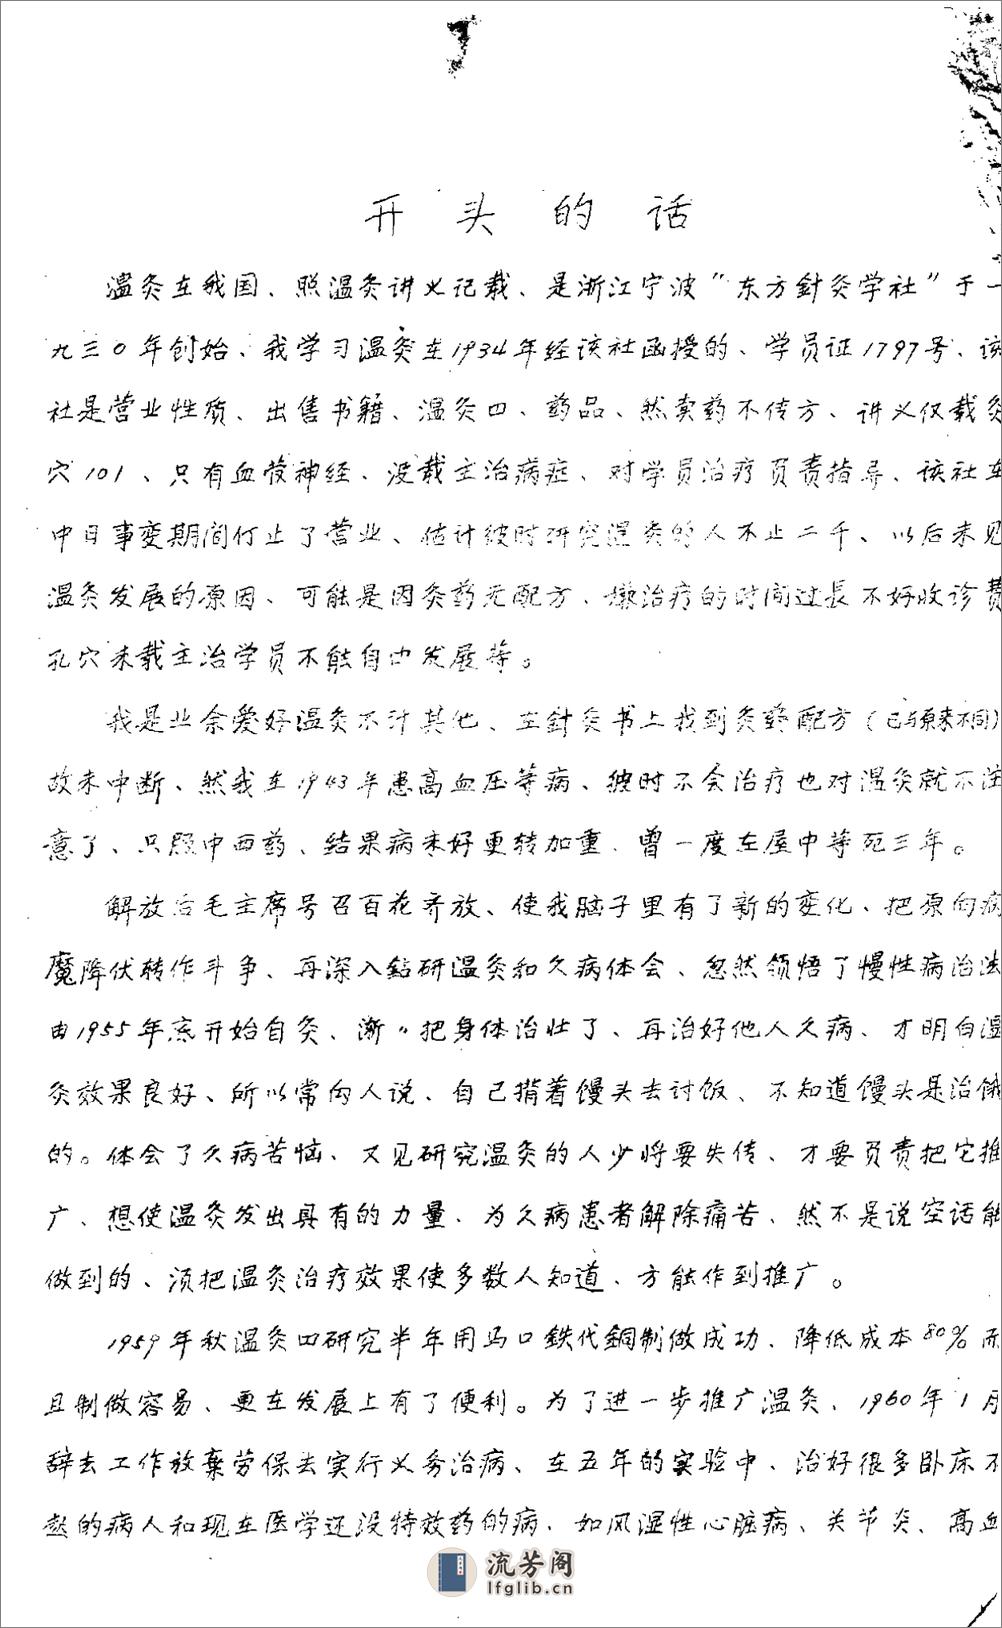 开头的话
温灸在我国、照温灸讲义记载、是浙江宁波“东方針灸学社”于一
九三〇年创始、我学习温灸在1934年经该社函授的、学员证1797号、该
社是营业性质、出售书籍、温灸四、药品、然卖药不传方、讲义仅载灸
穴101、只有血管神经、没载主治病症、对学员治疗负责指导、该社在
中日事变期间停止了营业、估计彼时研究温灸的人不止二千、以后未见
温灸发展的原因、可能是因灸药无配方、嫌治疗的时间过长不好收诊费
孔穴未载主治学员不能自由发展等。
我是业余爱好温灸不计其他、在針灸书上找到灸药配方（已与原来不同）
故未中断、然我在1943年患高血压等病、彼时不会治疗也对温灸就不注
意了、只服中西药、结果病未好更转加重、曾一度在屋中等死三年。
解放后毛主席号召百花齐放、使我脑子里有了新的变化、把原向病
魔降伏转作斗争、再深入鉆研温灸和久病体会、忽然领悟了慢性病治法
由1955年末开始自灸、渐〃把身体治壮了、再治好他人久病、才明白温
灸效果良好、所以常向人说、自己揹着馒头去讨饭、不知道馒头是治饿
的。体会了久病苦恼、又见研究温灸的人少将要失传、才要负责把它推
广、想使温灸发出具有的力量、为久病患者解除痛苦、然不是说空话能
做到的、须把温灸治疗效果使多数人知道、方能作到推广。
1959年秋温灸四研究半年用马口鉄代銅制做成功、降低成本80%而
且制做容易、更在发展上有了便利。为了进一步推广温灸、1960年1月
辞去工作放棄劳保去实行义务治病、在五年的实验中、治好很多卧床不
起的病人和现在医学还没特效药的病、如风湿性心脏病、关节炎、高血
流芳阁
lfglib.cn